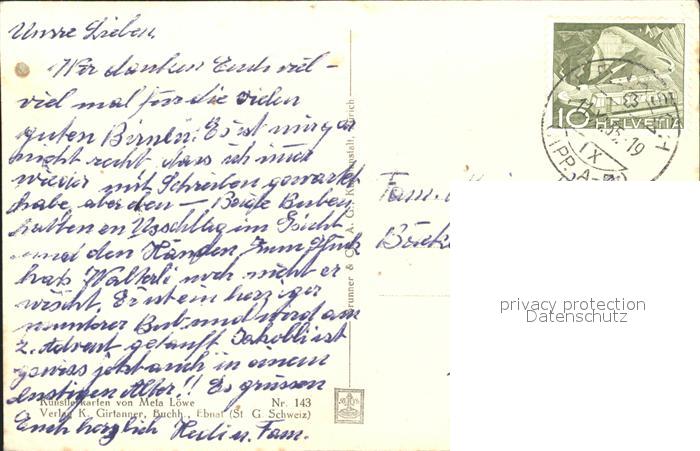 Unsre Lieben,
Wir danken Euch viel -
viel mal für die vielen
guten Birnen! Es ist mir gar
nicht recht, dass ich immer
wieder mit Schreiben gewartet
habe, aber den — Beide Buben
hatten en Usschlag im Gsicht
und den Händen. Zum Glück
hat's Walterli noch nicht er
wischt. Er ist ein herziger
munterer Bub und wird am
2. Advent getauft. Jakobli ist
gewiss jetzt auch in einem
lustigen Alter!! Es grüssen
Euch herzlich Hedi u. Fam.
Künstlerkarten von Meta Löwe Nr. 143
Verlag K. Girtanner, Buchh., Ebnat (St G Schweiz)
Brunner & A. G. Kunstanstalt, Zürich
10 HELVETIA
IX
Fam.
privacy protection
Datenschutz